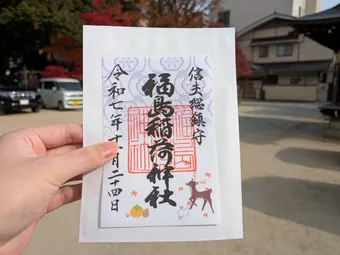 信夫総鎮守
福島稲荷神社
令和七年十一月二十四日